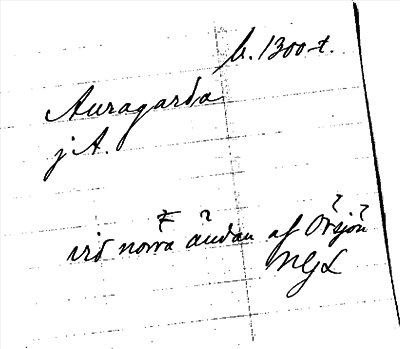 b. 1300-t.
Auragarda
j A.
vid norra ändan af Örsjön
NGL